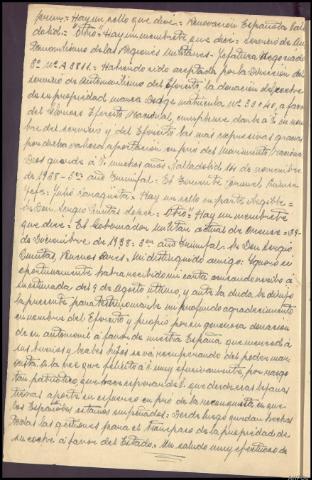 = Hay un sello que dice: = Renovación Española
= Otro = Hay un membrete que dice: Servicio de Au-
tomovilismo de las Regiones Militares. Jefatura Negociado
3º Nº A 8816 = Habiendo sido aceptada por la Dirección del
Servicio de Automovilismo del Ejército, la donación del coche
de su propiedad marca Dodge matrícula Nº 33040, a favor
del Glorioso Ejército Nacional, cumpleme darle a V. en nom-
bre del servicio y del Ejército las mas expresivas gracias
por dicha valiosa aportación en pro del Movimiento Nacional
Dios guarde a V. muchos años Valladolid 14 de noviembre
de 1938 - 3er año triunfal = El Teniente Coronel Primer
Jefe: Julio = Hay un sello en parte ilegible =
Sr. Don Sergio = Otro = Hay un membrete
que dice: El Gobernador Militar actual de Orense = 29-
de Diciembre de 1938 - 3er año triunfal - Sr. Don Sergio
Buenos Aires. Mi distinguido amigo: Ignoro si
oportunamente habrá recibido mi carta
9 de agosto último, y ante la duda, le dirijo
la presente para testimoniarle mi profundo agradecimiento
en nombre del Ejército y propio por su generosa donación
de su automóvil a favor de nuestra España que merced a
sus buenos y nobles hijos se va recuperando del poder mar-
xista, a la vez que felicito a V. muy efusivamente por rasgo
tan patriótico que
aporte su esfuerzo en pro de la reconquista en que
los Españoles estamos empeñados. Desde luego quedan hechas
todas las gestiones para el traspaso de la propiedad de
su coche a favor del Estado. Un saludo muy afectuoso de